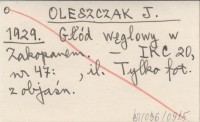 OLESZCZAK J.
1929. Głód węglowy w
Zakopanem. — IKC 20,
nr 47: , il. Tylko fot.
z objaśn.